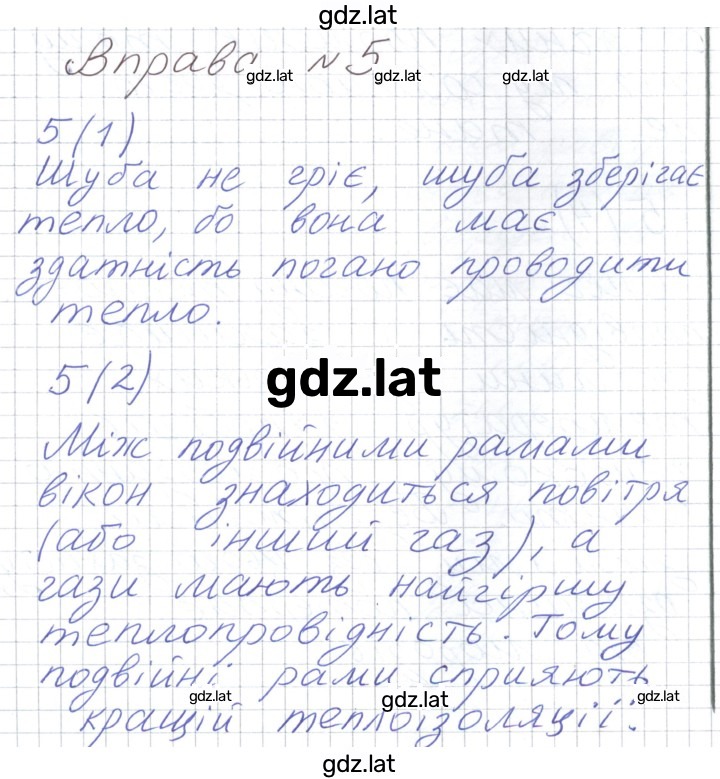 gdz.lat
Вправа №5
gdz.lat gdz.lat gdz.lat
5(1)
Шуба не гріє, шуба зберігає
тепло, бо вона має
здатність погано проводити
тепло.
5(2)
gdz.lat
Між подвійними рамами
вікон знаходиться повітря
(або інший газ), а
гази мають найгіршу
теплопровідність. Тому
подвійні рами сприяють
gdz.lat gdz.lat gdz.lat
кращій теплоізоляції.
gdz.lat